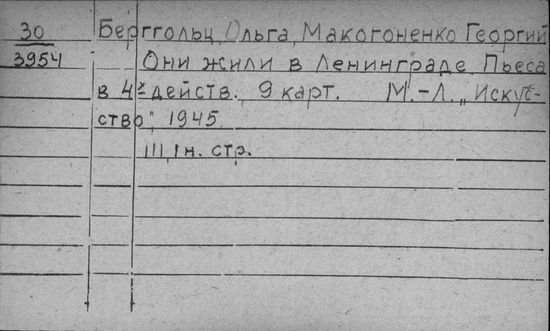 30 Берггольц, Ольга, Макогоненко Георгий
3954 Они жили в Ленинграде Пьеса
в 4х действ., 9 карт. М.-Л., „Искус-
ство", 1945.
111, 1 н. стр.